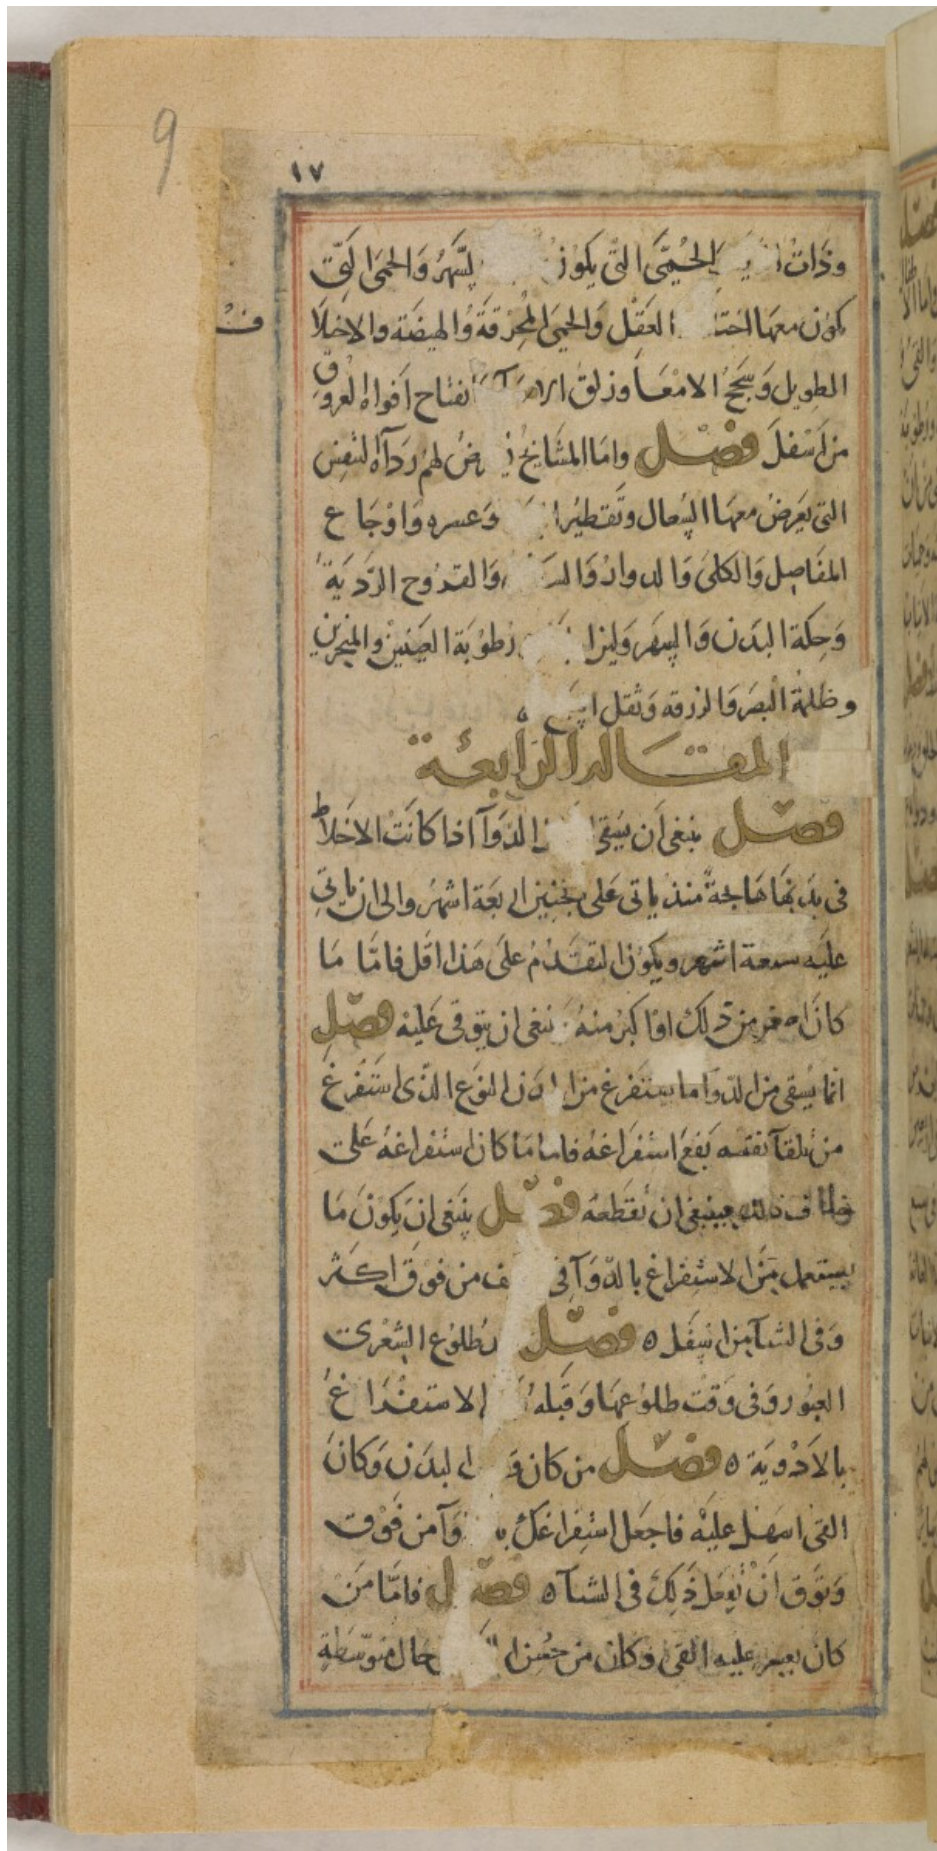 9
١٧
وذات الحُمَّى التى يكون السهر والحمى التى
يكون معها اختـ العقل والحمى المحرقة والهيضة والاختلا
ف
الطويل وسحج الامعا وزلق انفتاح افواه العروق
من اسفل فصل واما المشايخ ض لهم رداة التنفس
التى يعرض معها السعال وتقطير وعسره واوجاع
المفاصل والكلى والدوار والـ والقروح الردية
وحكة البدن والسهر ولين رطوبة العينين والمنخرين
وظلمة البصر والزرقه وثقل
المقالة الرابعة
فصل ينبغى ان يسقى الدوآ اذا كانت الاخلاط
فى بدنها هايجة منذ ياتى على الجنين اربعة اشهر والى ان ياتى
عليه سبعة اشهر ويكون التقدم على هذا اقل فامّا ما
كان اصغر من ذلك او اكبر منه ينبغى ان يتوقى عليه فصل
انما يسقى من الدوآ ما يستفرغ من البدن النوع الذى استفرغ
من تلقآ نفسه نفع استفراغه فاما ما كان استفراغه على
خلاف ذلك فينبغى ان تقطعه فصل ينبغى ان يكون ما
يستعمل من الاستفراغ بالدوآ فى ف من فوق اكثر
وفى الشتآ من اسفل ه فصل طلوع الشعرى
العبور وفى وقت طلوعها وقبله الاستفراغ
بالادوية ه فصل من كان البدن وكان
القى اسهل عليه فاجعل استفراغك وآ من فوق
وتوق ان تفعل ذلك فى الشتآ ه فصل فامّا من
كان يعسر عليه القى وكان من حسن حال متوسطة